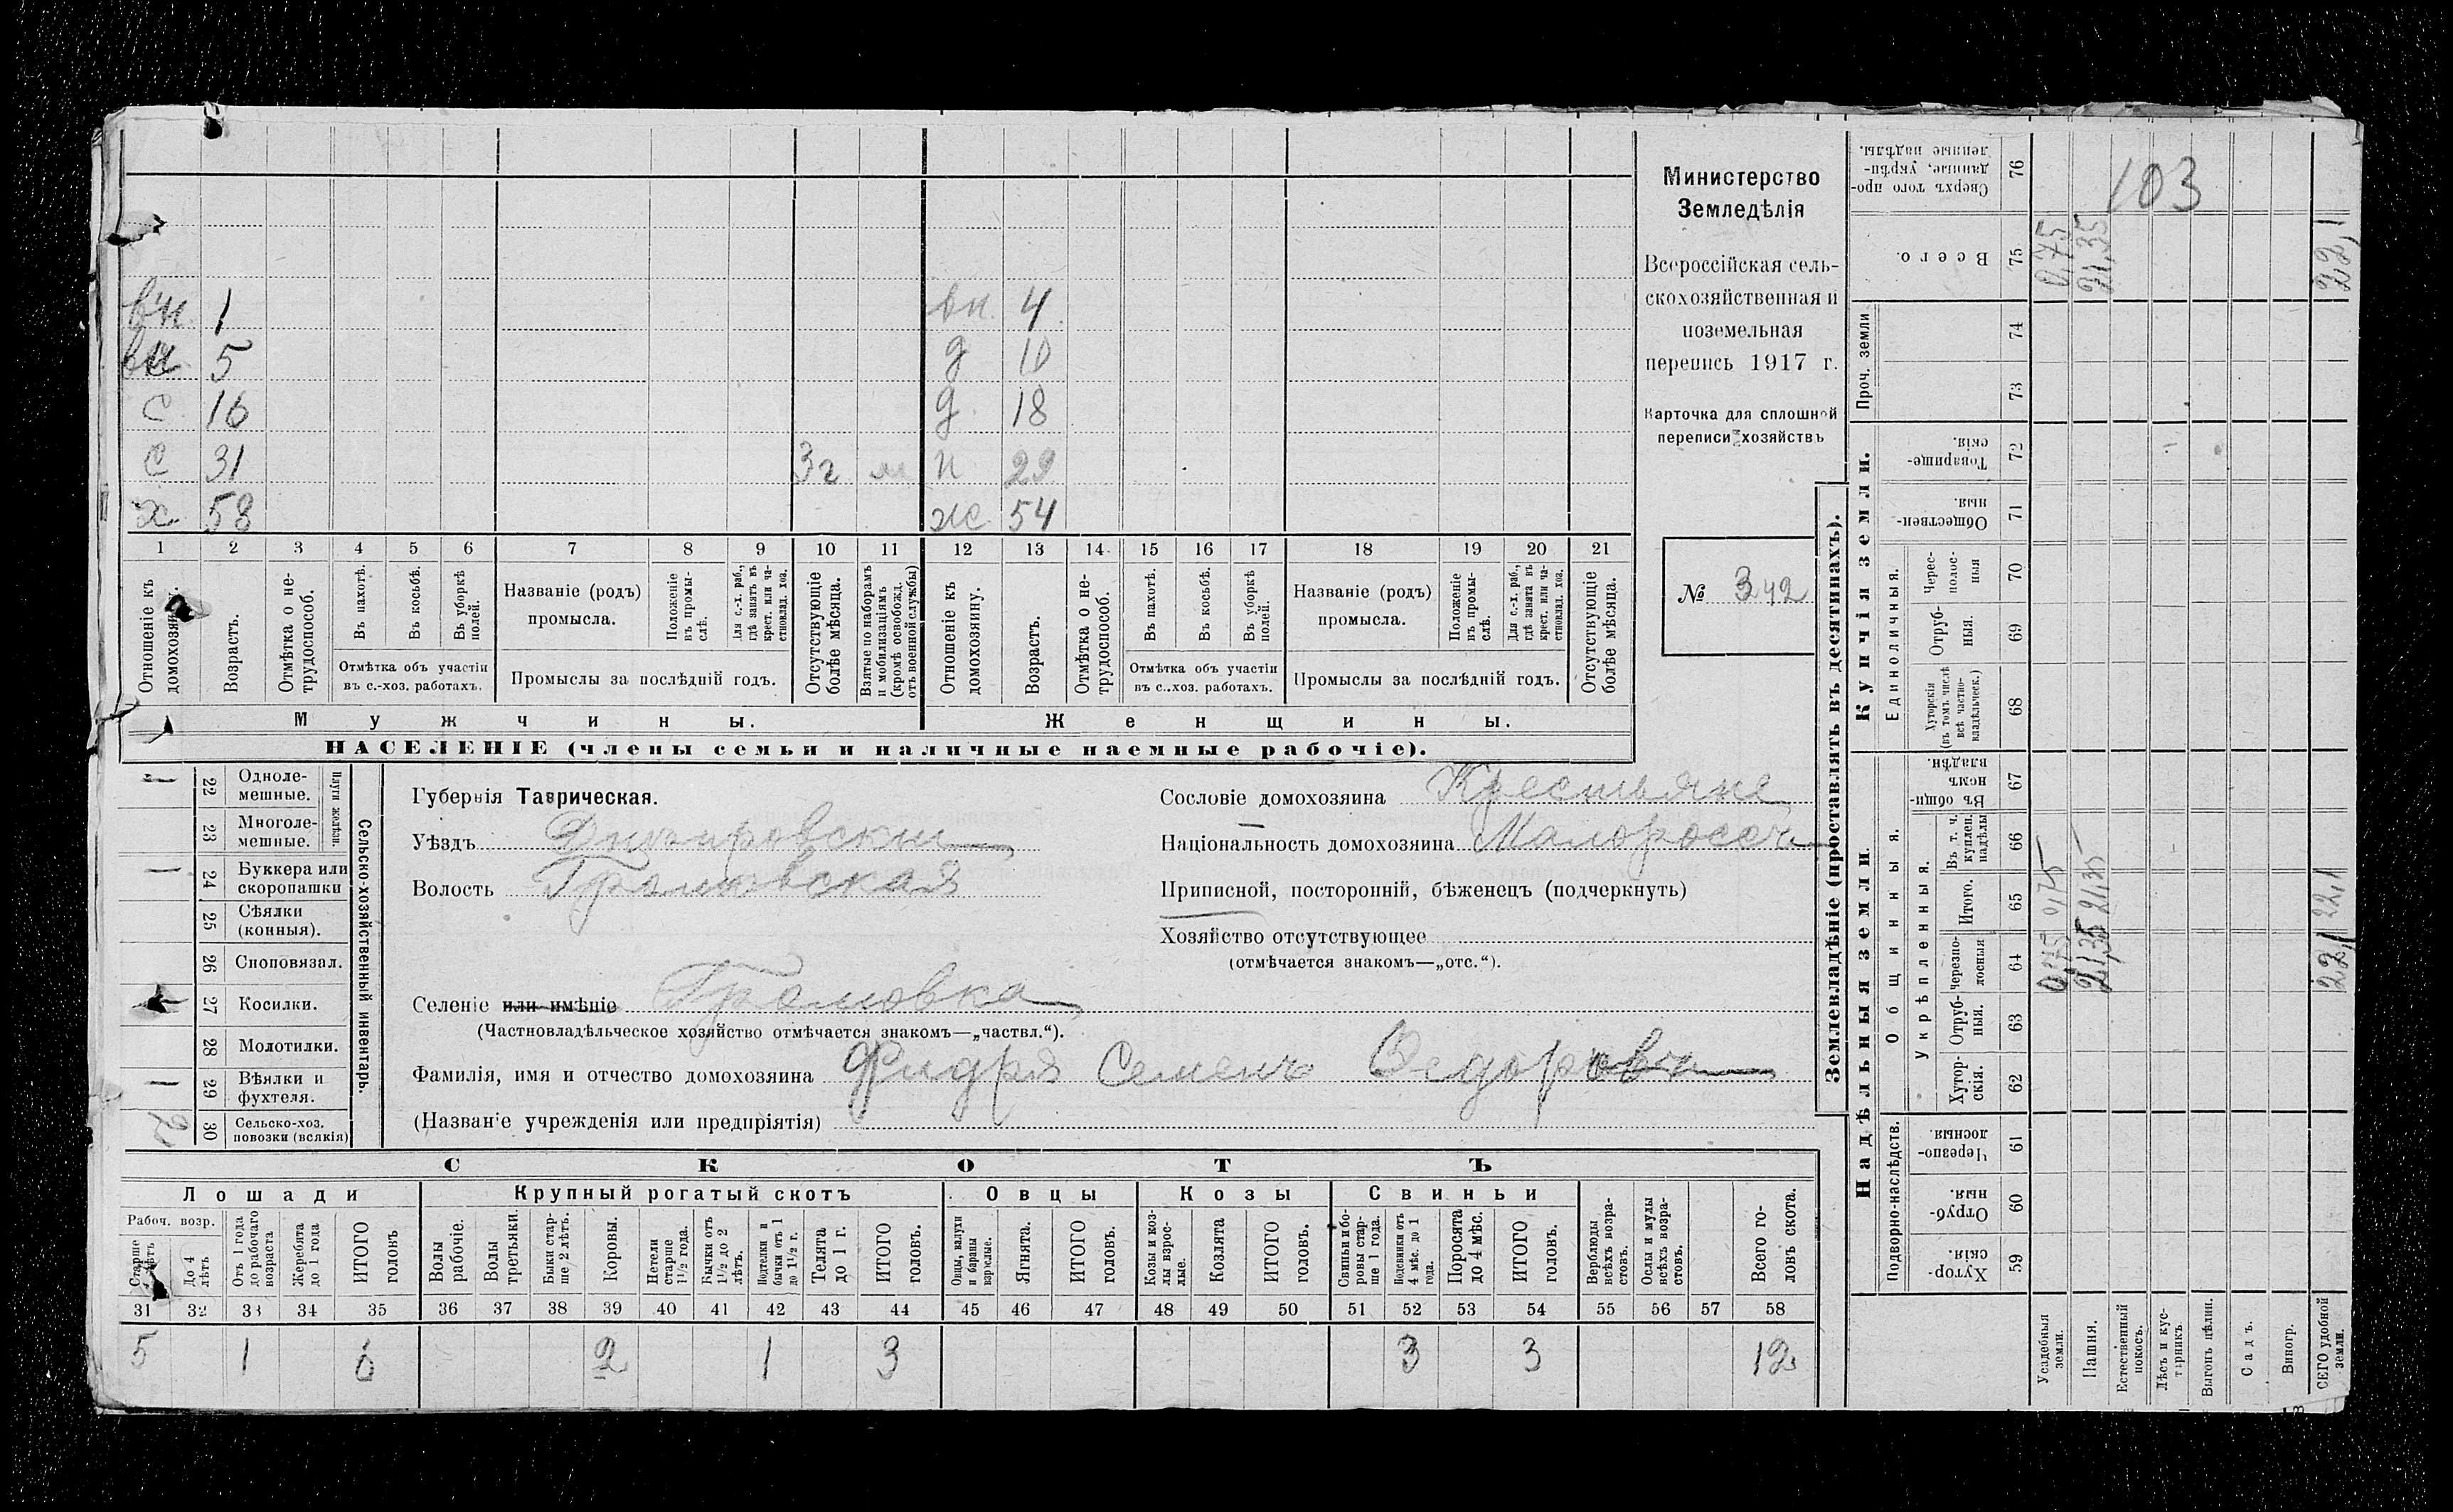 103
Министерство
Земледѣлія
Всероссійская сель-
скохозяйственная и
поземельная
перепись 1917 г.
Карточка для сплошной
переписи хозяйствъ
№ 342
вн. 1 вн. 4
вн 5 д 10
с 16 д 18
с 31 3г м н 29
х 58 ж 54
1 2 3 4 5 6 7 8 9 10 11 12 13 14 15 16 17 18 19 20 21
Отношеніе къ домохозяину.
Возрастъ.
Отмѣтка о не-трудоспособ.
Въ пахотѣ.
Въ косьбѣ.
Въ уборкѣ полей.
Отмѣтка объ участіи
въ с.-хоз. работахъ.
Названіе (родъ)
промысла.
Положеніе въ промы-слѣ.
Для с.-х. раб., гдѣ занятъ въ крест. или ча-стновлад. хоз.
Промыслы за послѣдній годъ.
Отсутствующіе болѣе мѣсяца.
Взятые по наборамъ и мобилизаціямъ (кромѣ освобожд. отъ военной службы)
Отношеніе къ домохозяину.
Возрастъ.
Отмѣтка о не-трудоспособ.
Въ пахотѣ.
Въ косьбѣ.
Въ уборкѣ полей.
Отмѣтка объ участіи
въ с..хоз. работахъ.
Названіе (родъ)
промысла.
Положеніе въ промы-слѣ.
Для с.-х. раб., гдѣ занята въ крест. или ча-стновлад. хоз.
Промыслы за послѣдній годъ.
Отсутствующіе болѣе мѣсяца.
Мужчины. Женщины.
НАСЕЛЕНІЕ (члены семьи и наличные наемные рабочіе).
Сельско-хозяйственный инвентарь.
Плуги желѣзн.
1 22 Одноле-мешные.
23 Многоле-мешные.
1 24 Буккера или скоропашки
25 Сѣялки (конныя).
26 Сноповязал.
27 Косилки.
28 Молотилки.
1 29 Вѣялки и фухтеля.
2 30 Сельско-хоз. повозки (всякія)
Губернія Таврическая.
Уѣздъ Днѣпровскій
Волость Громовская
Селеніе или имѣніе Громовка
(Частновладѣльческое хозяйство отмѣчается знакомъ—„частвл.“).
Фамилія, имя и отчество домохозяина Фидря Семенъ Федоровъ
(Названіе учрежденія или предпріятія)
Сословіе домохозяина Крестьяне
Національность домохозяина Малороссъ
Приписной, посторонній, бѣженецъ (подчеркнуть)
Хозяйство отсутствующее
(отмѣчается знакомъ—„отс.“).
СКОТЪ
Лошади Крупный рогатый скотъ Овцы Козы Свиньи
Рабоч. возр.
Старше 4 лѣтъ
До 4 лѣтъ
Отъ 1 года до рабочаго возраста
Жеребята до 1 года
ИТОГО головъ
Волы рабочіе.
Волы третьяки.
Быки стар-ше 2 лѣтъ.
Коровы.
Нетели старше 1½ года.
Бычки отъ 1½ до 2 лѣтъ.
Подтелки и бычки отъ 1 до 1½ г.
Телята до 1 г.
ИТОГО головъ.
Овцы, валухи и бараны взрослые.
Ягнята.
ИТОГО головъ.
Козы и коз-лы взрос-лые.
Козлята
ИТОГО головъ.
Свиньи и бо-ровы стар-ше 1 года.
Подсвинки отъ 4 мѣс. до 1 года.
Поросята до 4 мѣс.
ИТОГО головъ.
Верблюды всѣхъ возра-стовъ.
Ослы и мулы всѣхъ возра-стовъ.
Всего го-ловъ скота.
31 32 33 34 35 36 37 38 39 40 41 42 43 44 45 46 47 48 49 50 51 52 53 54 55 56 57 58
5 1 6 2 1 3 3 3 12
Землевладѣніе (проставлять въ десятинахъ).
Надѣльныя земли
Купчія земли.
Подворно-наслѣдств.
Общинныя.
Укрѣпленныя.
Единоличныя.
Проч. земли
Хутор-скія. 59
Отруб-ныя. 60
Черезпо-лосныя. 61
Хутор-скія. 62
Отруб-ныя. 63
Черезпо-лосныя 64
Итого. 65
Въ т. ч. куплен. надѣлы 66
Въ общин-номъ владѣн. 67
Хуторскія (въ томъ числѣ всѣ частно-владѣльческ.) 68
Отруб-ныя. 69
Черес-полос-ныя 70
Обществен-ныя 71
Товарище-скія. 72
73
74
Всего. 75
Сверхъ того про-данные, укрѣп-ленные надѣлы. 76
Усадебныя земли. 0,75 0,75 0,75
Пашня. 21,35 21,35 21,35
Естественный покосъ.
Лѣсъ и кус-тарникъ.
Выгонъ цѣлин.
Садъ.
Виногр.
ВСЕГО удобной земли. 22,1 22,1 22,1